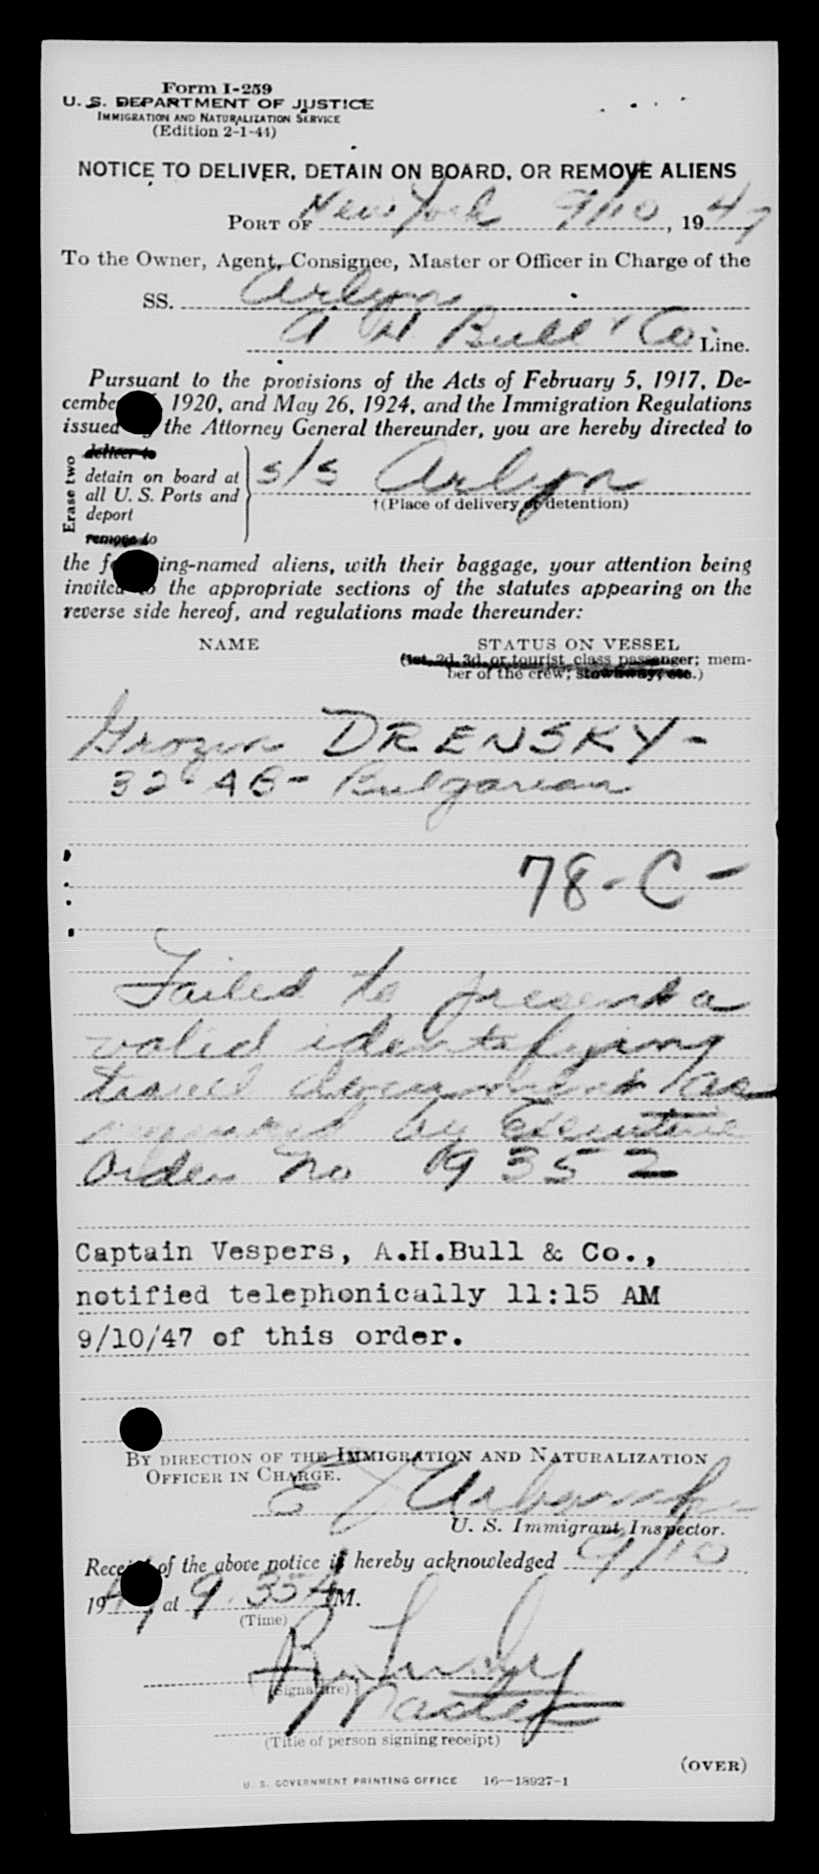 Form I-259
U. S. DEPARTMENT OF JUSTICE
IMMIGRATION AND NATURALIZATION SERVICE
(Edition 2-1-44)
NOTICE TO DELIVER, DETAIN ON BOARD, OR REMOVE ALIENS
PORT OF New York 9/10, 1947
To the Owner, Agent, Consignee, Master or Officer in Charge of the
SS. Arlyn
A H Bull & Co Line.
Pursuant to the provisions of the Acts of February 5, 1917, De-
cembe 1920, and May 26, 1924, and the Immigration Regulations
issued by the Attorney General thereunder, you are hereby directed to
Erase two
deliver to
detain on board at
all U. S. Ports and
deport
remove to
s/s Arlyn
†(Place of delivery or detention)
the following-named aliens, with their baggage, your attention being
invited to the appropriate sections of the statutes appearing on the
reverse side hereof, and regulations made thereunder:
NAME STATUS ON VESSEL
(1st, 2d, 3d, or tourist class passenger; mem-
ber of the crew; stowaway, etc.)
Grozin DRENSKY-
32 AB- Bulgarian
78-C-
Failed to present a
valid identifying
travel document as
required by Executive
Order No 9352
Captain Vespers, A.H.Bull & Co.,
notified telephonically 11:15 AM
9/10/47 of this order.
BY DIRECTION OF THE IMMIGRATION AND NATURALIZATION
OFFICER IN CHARGE.
U. S. Immigrant Inspector.
Receipt of the above notice is hereby acknowledged 9/10
1947 at 9.35 AM.
(Time)
(Signature)
Master
(Title of person signing receipt)
(OVER)
U. S. GOVERNMENT PRINTING OFFICE 16—18927-1